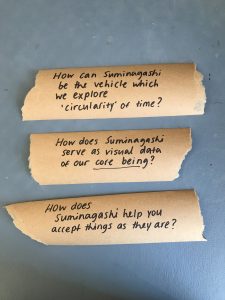 How can Suminagashi
be the vehicle which
we explore
'circularity' of time?
How does Suminagashi
serve as visual data
of our core being?
How does
Suminagashi help you
accept things as they are?